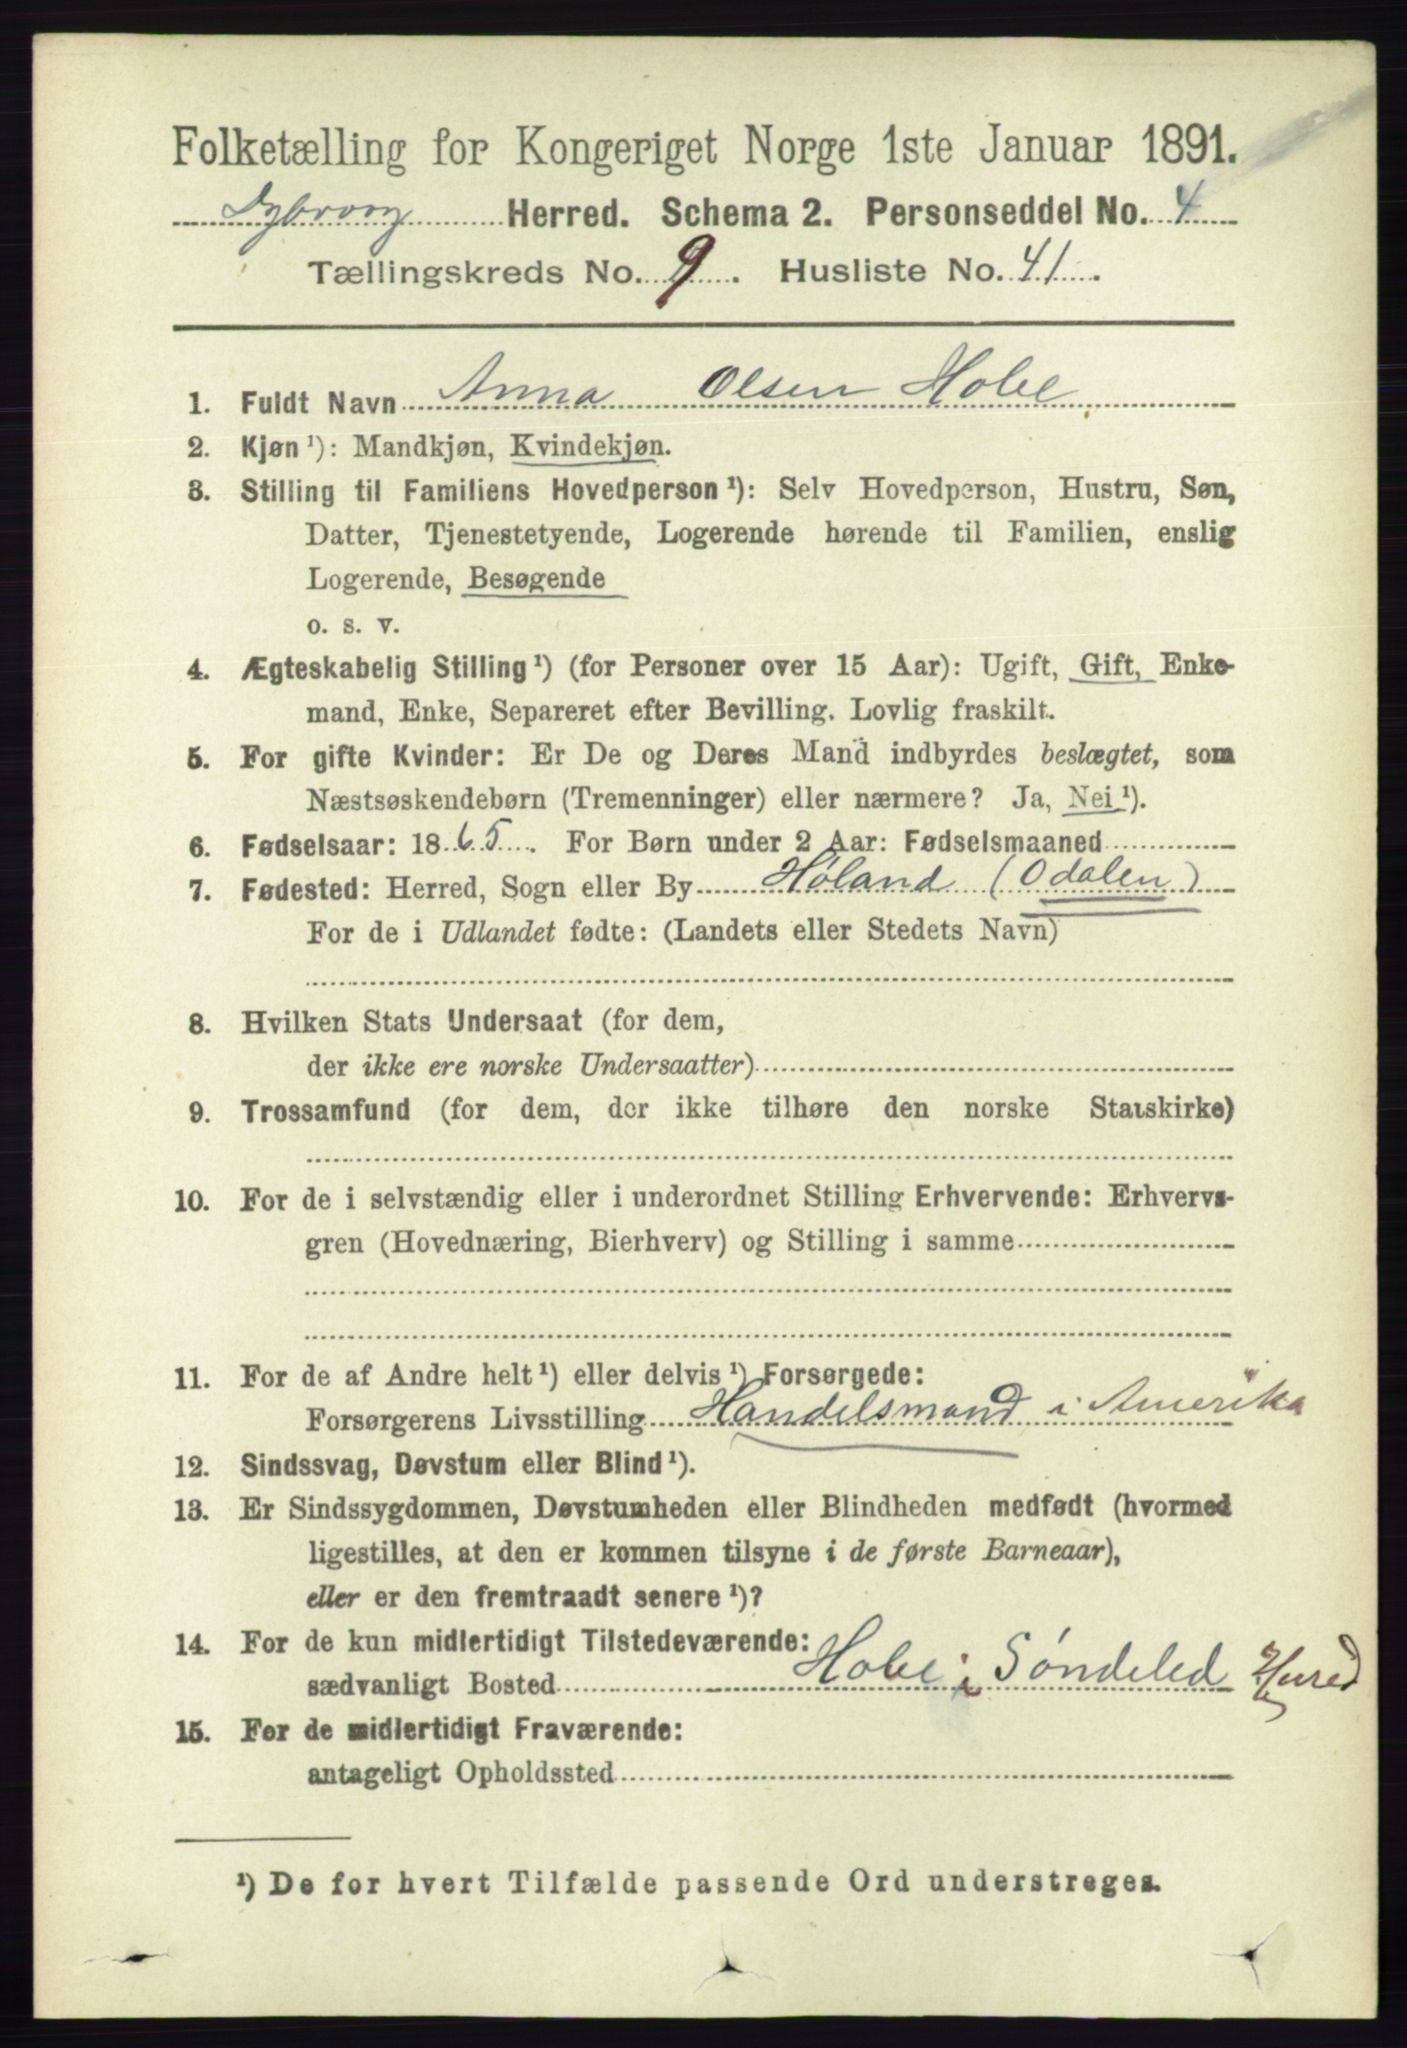 Folketælling for Kongeriget Norge 1ste Januar 1891.
Dybvaag Herred. Schema 2. Personseddel No. 4
Tællingskreds No. 9. Husliste No. 41.
1. Fuldt Navn Anna Olsen Hobe
2. Kjøn ¹): Mandkjøn, Kvindekjøn.
3. Stilling til Familiens Hovedperson ¹): Selv Hovedperson, Hustru, Søn,
Datter, Tjenestetyende, Logerende hørende til Familien, enslig
Logerende, Besøgende
o. s. v.
4. Ægteskabelig Stilling ¹) (for Personer over 15 Aar): Ugift, Gift, Enke-
mand, Enke, Separeret efter Bevilling. Lovlig fraskilt.
5. For gifte Kvinder: Er De og Deres Mand indbyrdes beslægtet, som
Næstsøskendebørn (Tremenninger) eller nærmere? Ja, Nei ¹).
6. Fødselsaar: 1865. For Børn under 2 Aar: Fødselsmaaned
7. Fødested: Herred, Sogn eller By Høland (Odalen)
For de i Udlandet fødte: (Landets eller Stedets Navn)
8. Hvilken Stats Undersaat (for dem,
der ikke ere norske Undersaatter)
9. Trossamfund (for dem, der ikke tilhøre den norske Statskirke)
10. For de i selvstændig eller i underordnet Stilling Erhvervende: Erhvervs-
gren (Hovednæring, Bierhverv) og Stilling i samme
11. For de af Andre helt ¹) eller delvis ¹) Forsørgede:
Forsørgerens Livsstilling Handelsmand i Amerika
12. Sindssvag, Døvstum eller Blind ¹).
13. Er Sindssygdommen, Døvstumheden eller Blindheden medfødt (hvormed
ligestilles, at den er kommen tilsyne i de første Barneaar),
eller er den fremtraadt senere ¹)?
14. For de kun midlertidigt Tilstedeværende:
sædvanligt Bosted Hobe i Søndeled Herred
15. For de midlertidigt Fraværende:
antageligt Opholdssted
¹) De for hvert Tilfælde passende Ord understreges.